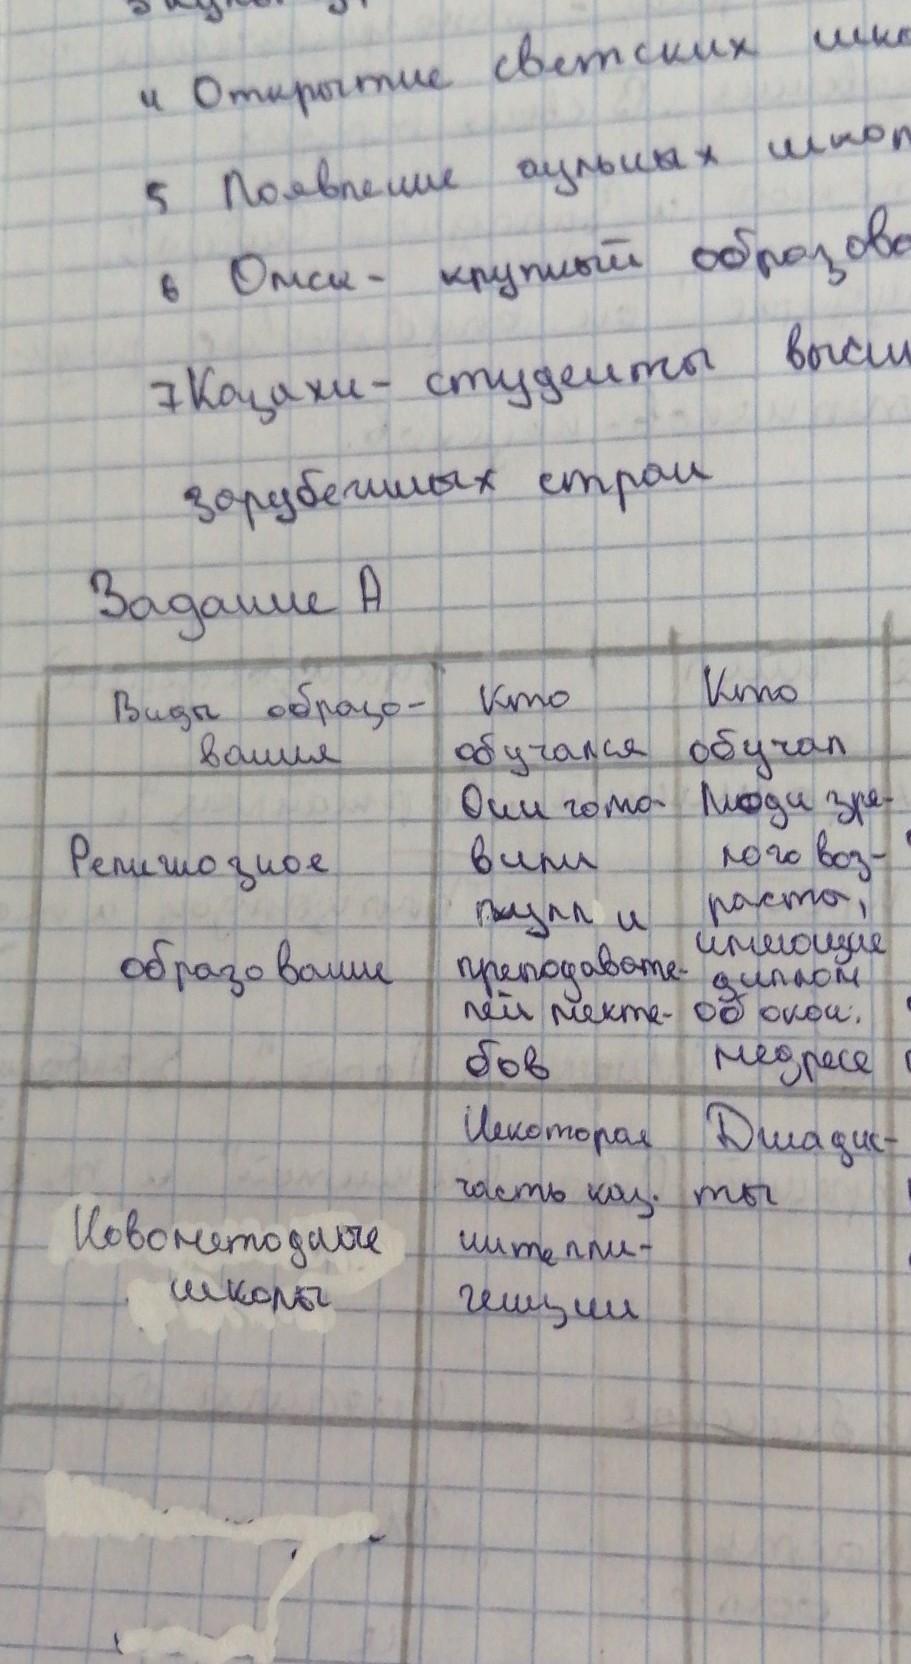 4 Открытие светских шко
5 Появление аульных школ
6 Омск - крупный образова
7 Казахи - студенты высш
зарубежных стран
Задание А
Виды образо-
вания
Кто
обучался
Кто
обучал
Религиозное
образование
Они гото-
вили
мулл и
преподавате-
лей мекте-
бов
Люди зре-
лого воз-
раста,
имеющие
диплом
об окон.
медресе
Новометодные
школы
Некоторая
часть каз.
интелли-
генции
Джадис-
ты